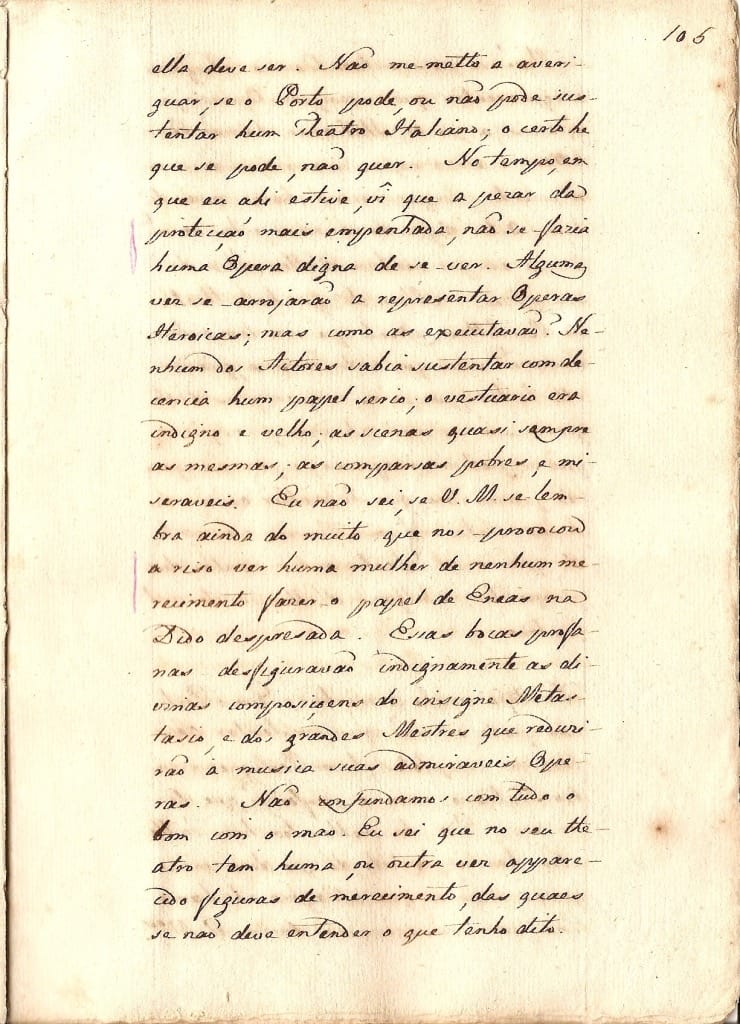 105
ella deve ser. Não me metto a averi-
guar, se o Porto pode, ou não pode sus-
tentar hum Theatro Italiano; o certo he
que se pode, não quer. No tempo, em
que eu ahi estive, vî que a pezar da
protecçaõ mais empenhada, não se fazia
huma Opera digna de se ver. Alguma
vez se arrojarão a representar Operas
Heroicas; mas como as executavão? Ne-
nhum dos Actores sabia sustentar com de-
cencia hum papel serio; o vestuario era
indigno e velho; as scenas quasi sempre
as mesmas; as comparsas pobres, e mi-
seraveis. Eu não sei, se V. M. se lem
bra ainda do muito que nos provocou
a riso ver huma mulher de nenhum me-
recimento fazer o papel de Eneas na
Dido desprezada. Essas bocas profa-
nas desfiguravão indignamente as di-
vinas composiçoens do insigne Metas-
tasio, e dos grandes Mestres que reduzi-
rão à musica suas admiraveis Ope-
ras. Não confundamos com tudo o
bom com o mao. Eu sei que no seu The-
atro tem huma, ou outra vez appare-
cido figuras de merecimento, das quaes
se não deve entender o que tenho dito.